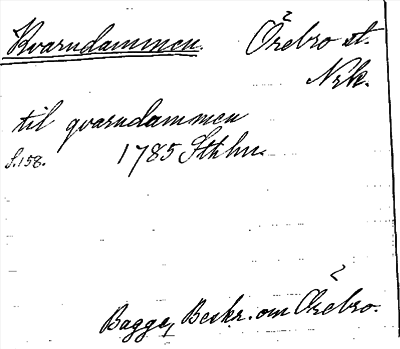 Kvarndammen. Örebro st.
Nrk.
til qvarndammen
S.158. 1785 Sthlm.
Bagge, Beskr. om Örebro.